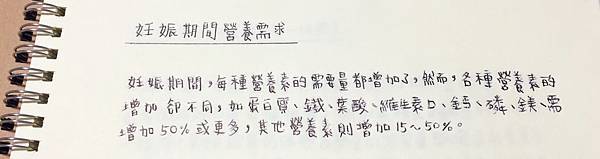 妊娠期間營養需求
妊娠期間，每種營養素的需要量都增加了，然而，各種營養素的
增加卻不同，如蛋白質、鐵、葉酸、維生素D、鈣、磷、鎂、需
增加50%或更多，其他營養素則增加15~50%。